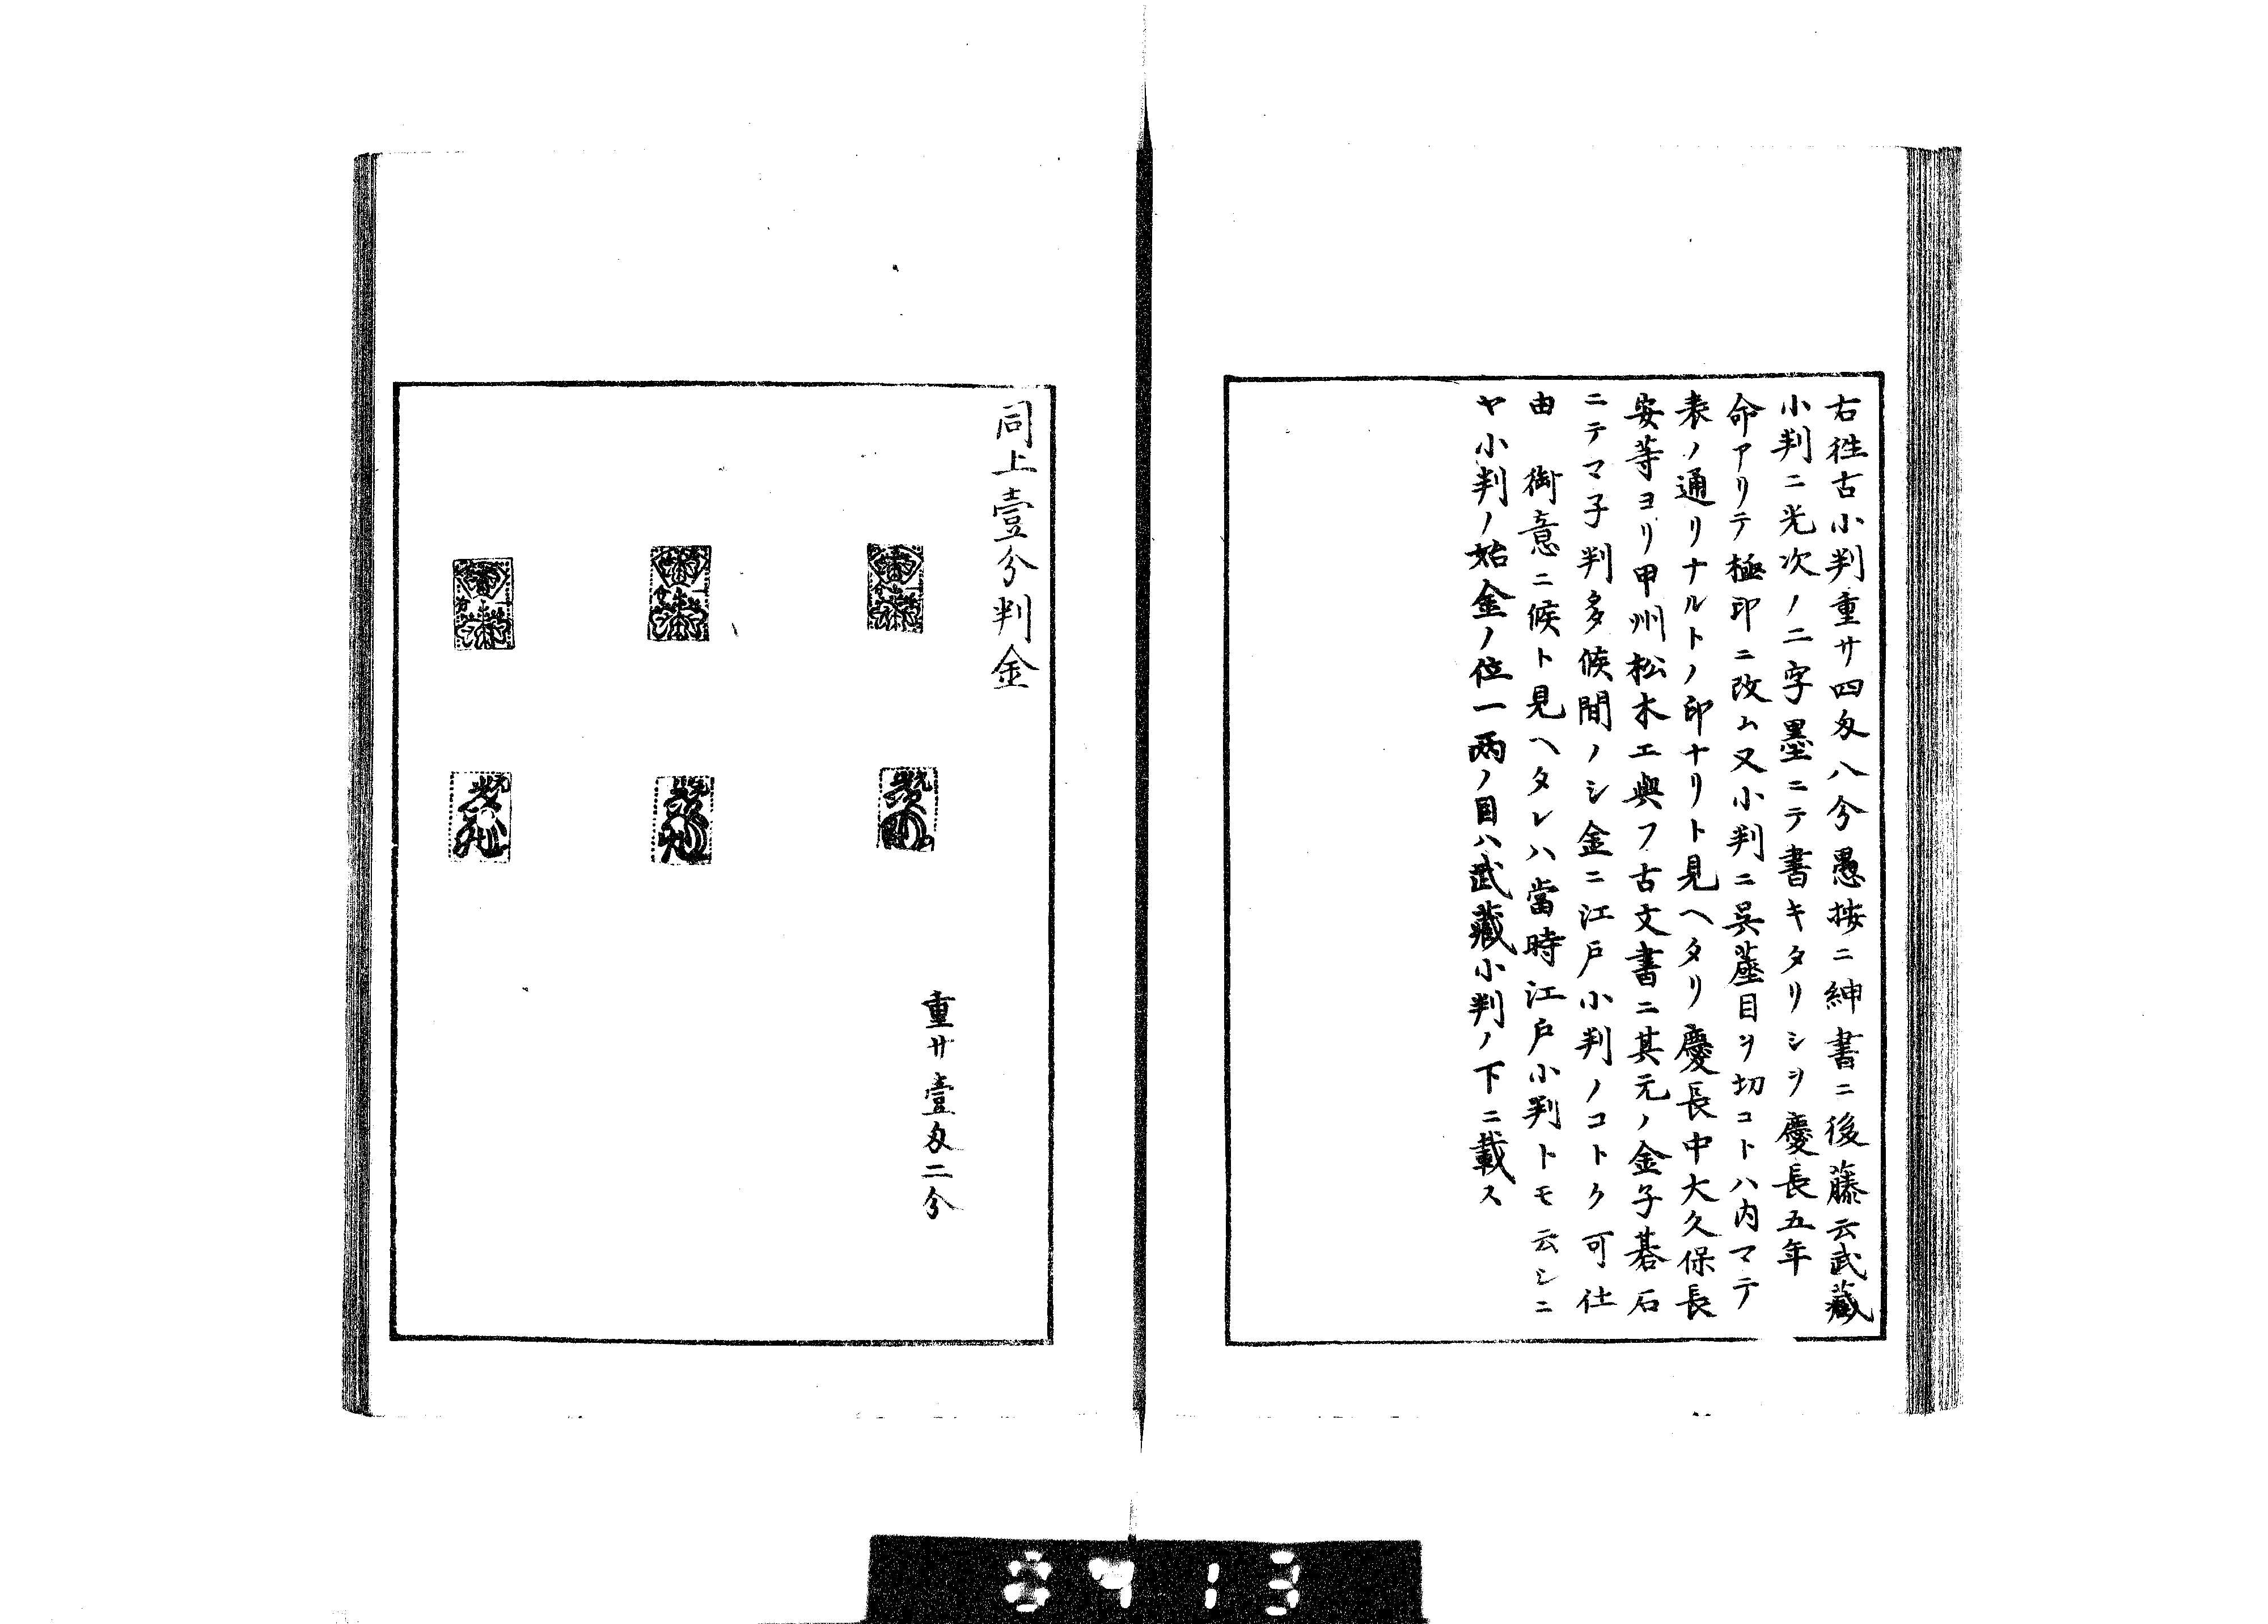 右徃古小判重サ四匁八分愚按ニ紳書ニ後藤云武藏
小判ニ光次ノ二字墨ニテ書キタリシヲ慶長五年
命アリテ極印ニ改ム又小判ニ呉蓙目ヲ切コトハ内マテ
表ノ通リナルトノ印ナリト見ヘタリ慶長中大久保長
安等ヨリ甲州松木エ與フ古文書ニ其元ノ金子碁石
ニテマ子判多候間ノシ金ニ江戸小判ノコトク可仕
由　御意ニ候ト見ヘタレハ當時江戸小判トモ云シニ
ヤ小判ノ始金ノ位一兩ノ目ハ武藏小判ノ下ニ載ス
同上壹分判金
重サ壹匁二分
8713